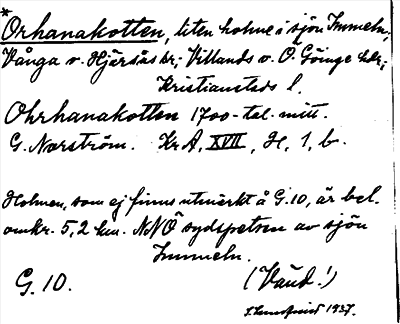 *Orhanakotten, liten holme i sjön Immeln,
Vånga o. Hjärsås sr; Villands o. Ö. Göinge hdr;
Kristianstads l.
Ohrhanakotten 1700-tal. mitt.
G. Norström. Kr A, XVII, H, 1, b.
Holmen, som ej finns utmärkt å G.10, är bel.
omkr. 5,2 km. NNÖ sydspetsen av sjön
Immeln.
G. 10.
(Vånd!)
1937.